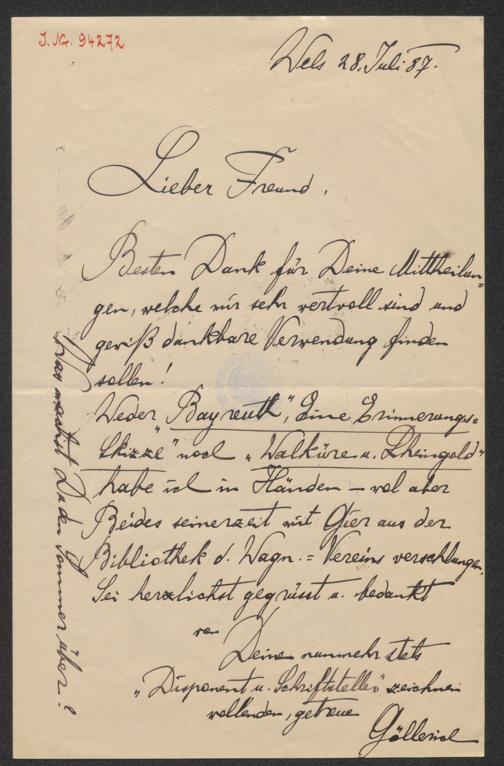 J. Nr. 94272
Wels 28. Juli 87.
Lieber Freund,
Besten Dank für Deine Mittheilun=
gen, welche mir sehr wertvoll sind und
gewiß dankbare Verwendung finden
sollen!
Weder „Bayreuth", Eine Erinnerungs=
skizze" noch „Walküre u. Rheingold"
habe ich in Händen – wol aber
Beides seinerzeit mit Gier aus der
Bibliothek d. Wagn.=Vereins verschlungen.
Sei herzlichst gegrüsst u. bedankt
von
Deinem nunmehr stets
„Disponent u. Schriftsteller" zeichnen
wollenden, getreuen
Göllerich
Was machst Du den Sommer über?